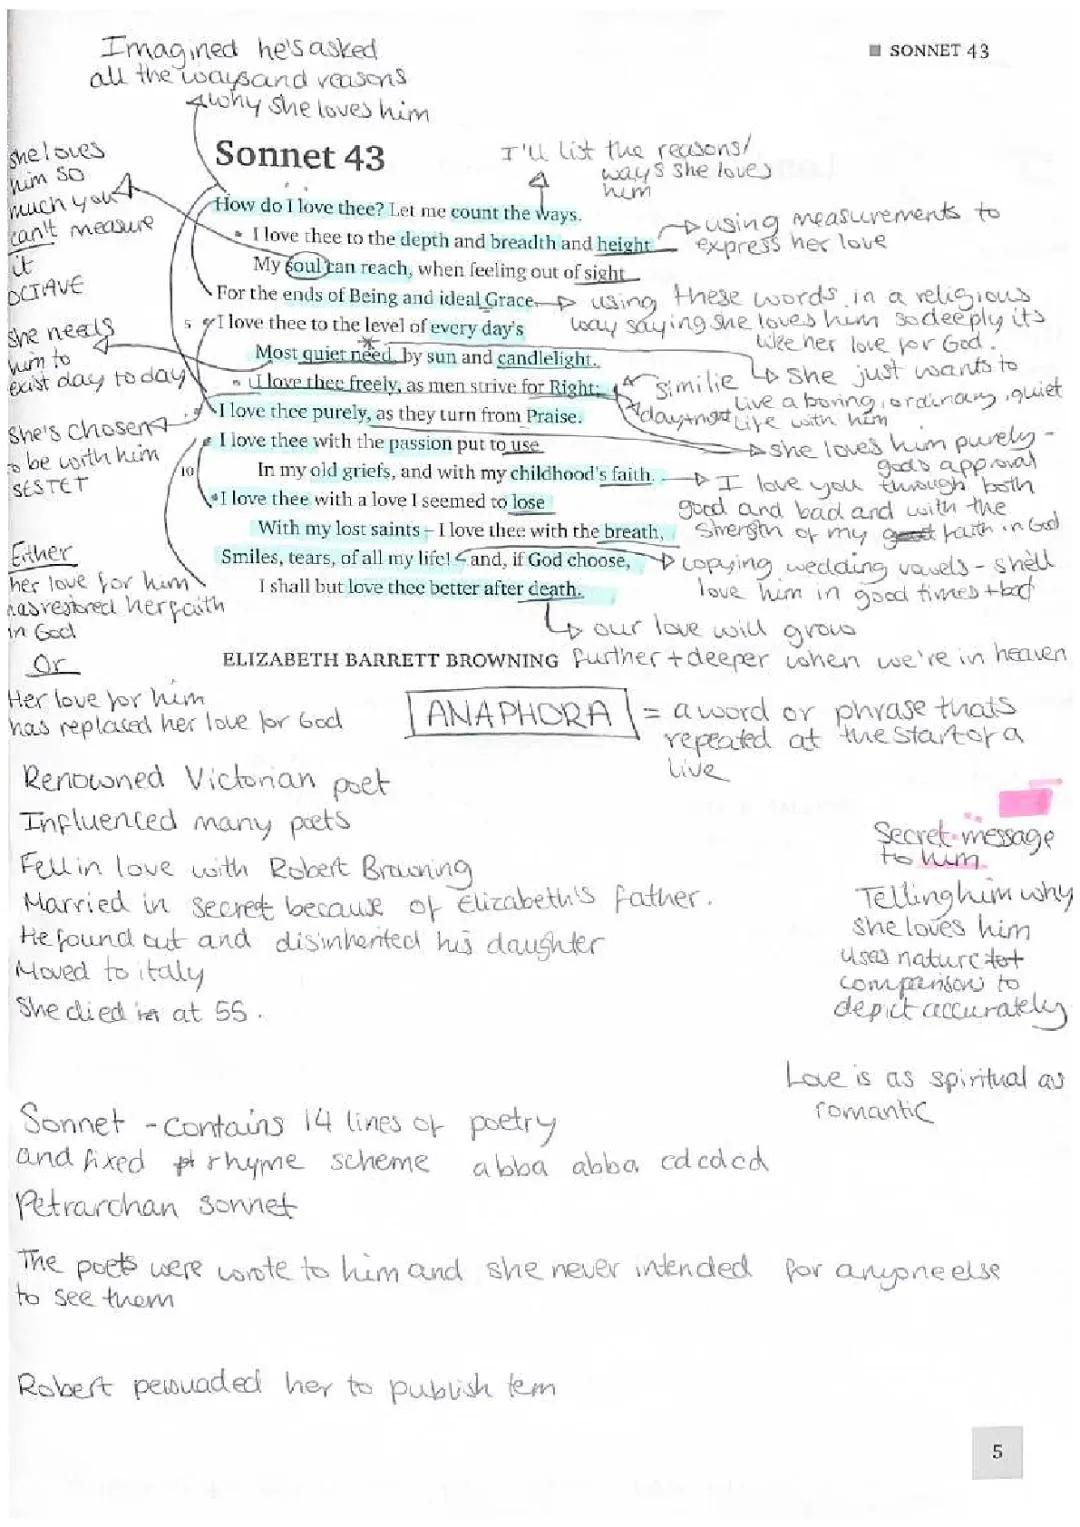 Imagined he's asked
all the ways and reasons
why she loves him
■ SONNET 43
Sonnet 43
I'll list the reasons/
ways she loves
him
she loves
him so
much you
can't measure
it
OCTAVE
she needs
him to
exist day to day
She's chosen
to be with him
SESTET
Either
her love for him
has restored her faith
in God
Or
Her love for him
has replaced her love for God
How do I love thee? Let me count the ways.
I love thee to the depth and breadth and height
My soul can reach, when feeling out of sight
For the ends of Being and ideal Grace.
5 I love thee to the level of every day's
Most quiet need, by sun and candlelight.
I love thee freely, as men strive for Right;
I love thee purely, as they turn from Praise.
I love thee with the passion put to use
10 In my old griefs, and with my childhood's faith.
I love thee with a love I seemed to lose
With my lost saints – I love thee with the breath,
Smiles, tears, of all my life! – and, if God choose,
I shall but love thee better after death.
ELIZABETH BARRETT BROWNING
using measurements to
express her love
using these words in a religious
way saying she loves him so deeply its
like her love for God.
similie
day+night
She just wants to
live a boring, ordinary, quiet
life with him
she loves him purely -
gods approval
I love you through both
good and bad and with the
strength of my faith in God
copying wedding vowels - shell
love him in good times + bad
our love will grow
further + deeper when we're in heaven
ANAPHORA = a word or phrase thats
repeated at the start of a
live
Renowned Victorian poet
Influenced many poets
Fell in love with Robert Browning
Married in secret because of Elizabeth's father.
He found out and disinherited his daughter
Moved to italy
She died at 55.
Secret message
to him
Telling him why
she loves him
uses nature
comparison to
depict accurately
Love is as spiritual as
romantic
Sonnet - contains 14 lines of poetry
and fixed rhyme scheme abba abba cdcdcd
Petrarchan sonnet
The poets were wrote to him and she never intended for anyone else
to see them
Robert persuaded her to publish tem
5